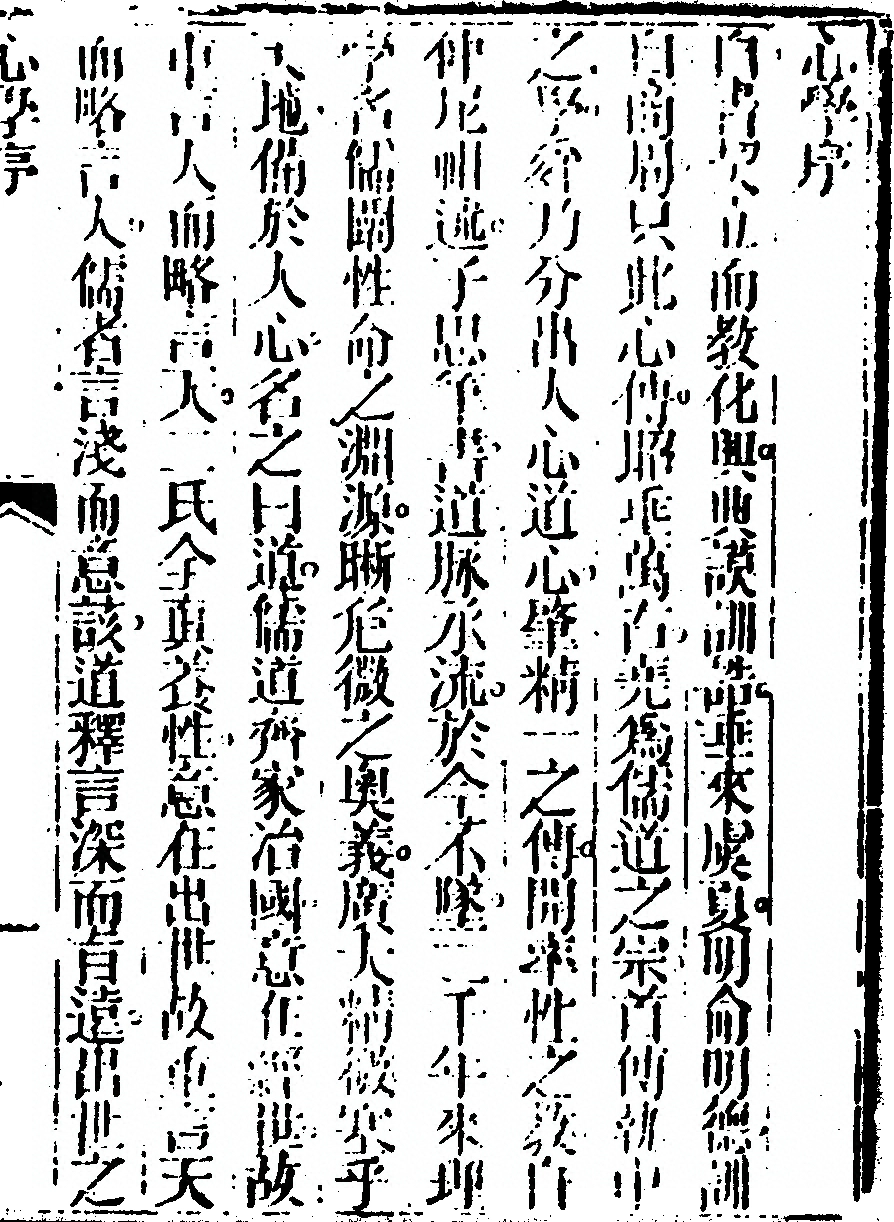 心學序
自書契立而教化興典謨訓誥垂來虞夏明俞明德訓
自商周只此心傳昭垂萬古堯爲儒道之宗首傳執中
之學舜乃分出人心道心肇精一之傳開率性之教自
仲尼祖述子思筆書道脉承流於今不墜二千年來理
學名儒闡性命之淵源晰危微之奧義廣大精微寔乎
天地備於人心名之曰道儒道齊家治國意在經世故
重言人而略言天二氏全真養性意在出世故重言天
而略言人儒者言淺而意該道釋言深而旨遠出世之
心學序